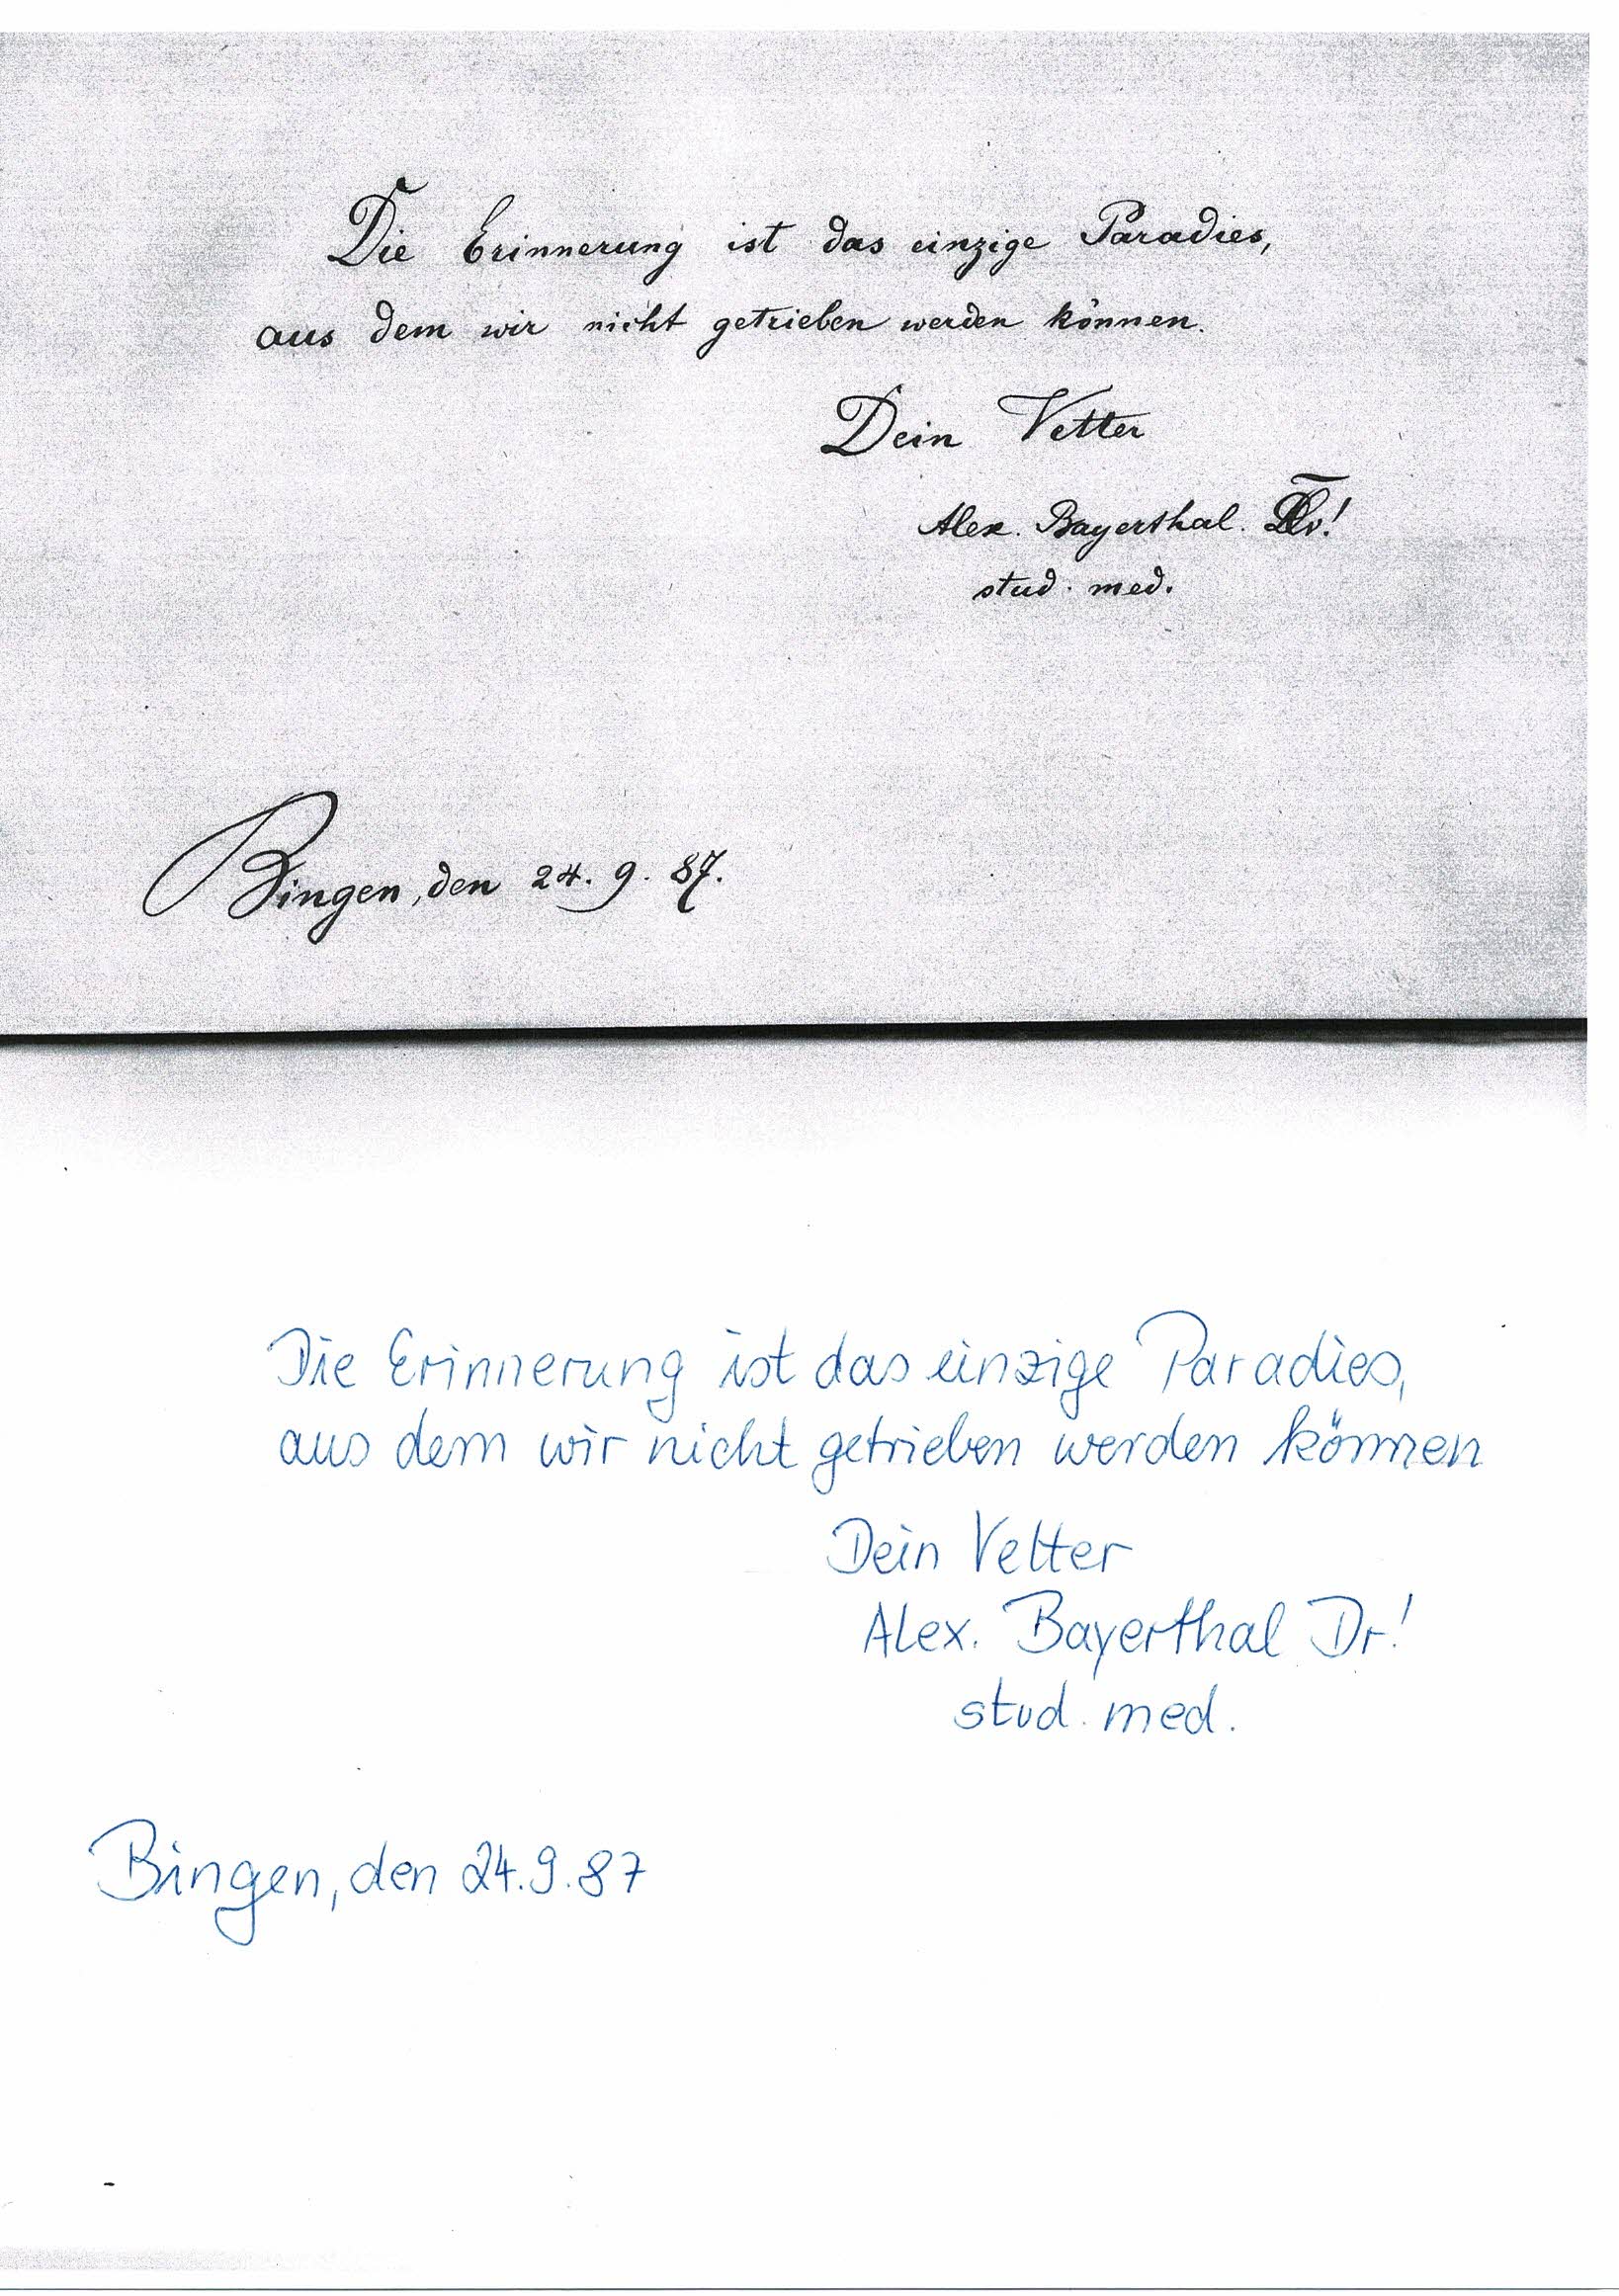 Die Erinnerung ist das einzige Paradies,
aus dem wir nicht getrieben werden können.
Dein Vetter
Alex. Bayerthal.
stud. med.
Bingen, den 24. 9. 87.
Die Erinnerung ist das einzige Paradies,
aus dem wir nicht getrieben werden können
Dein Vetter
Alex. Bayerthal Dr!
stud. med.
Bingen, den 24.9.87